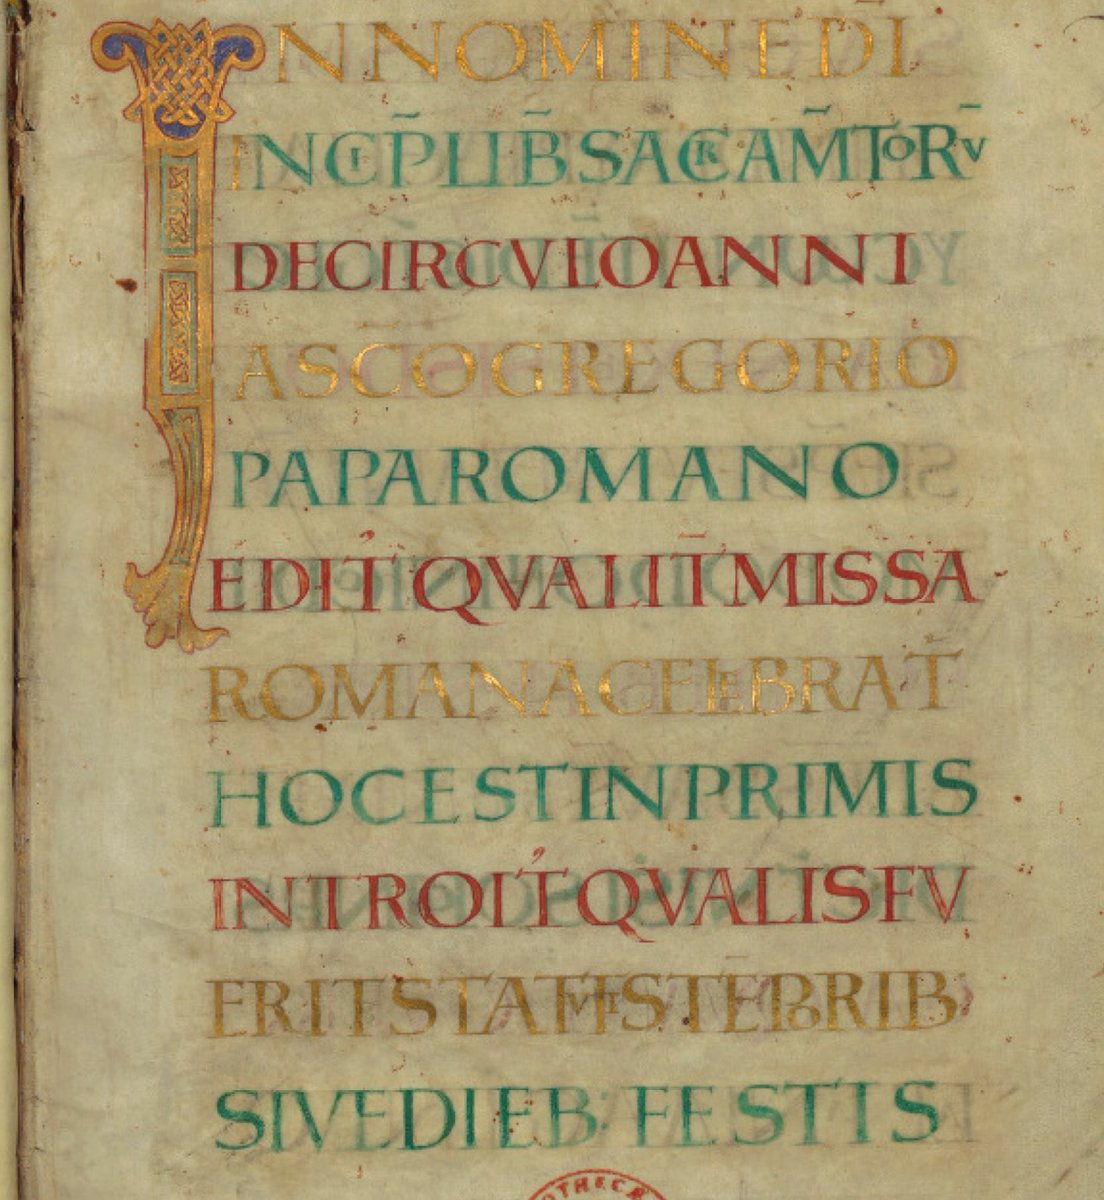 IN NOMINE DI̅
INCIP̅ LIB̅ SACRAM̅TORV̅
DE CIRCVLO ANNI
A SC̅O GREGORIO
PAPA ROMANO
EDIT᾿ QVALIT̅ MISSA
ROMANA CELEBRAT̅
HOC EST IN PRIMIS
INTROIT᾿ QVALIS FV
ERIT STATVTIS TE̅PORIB;
SIVE DIEB: FESTIS